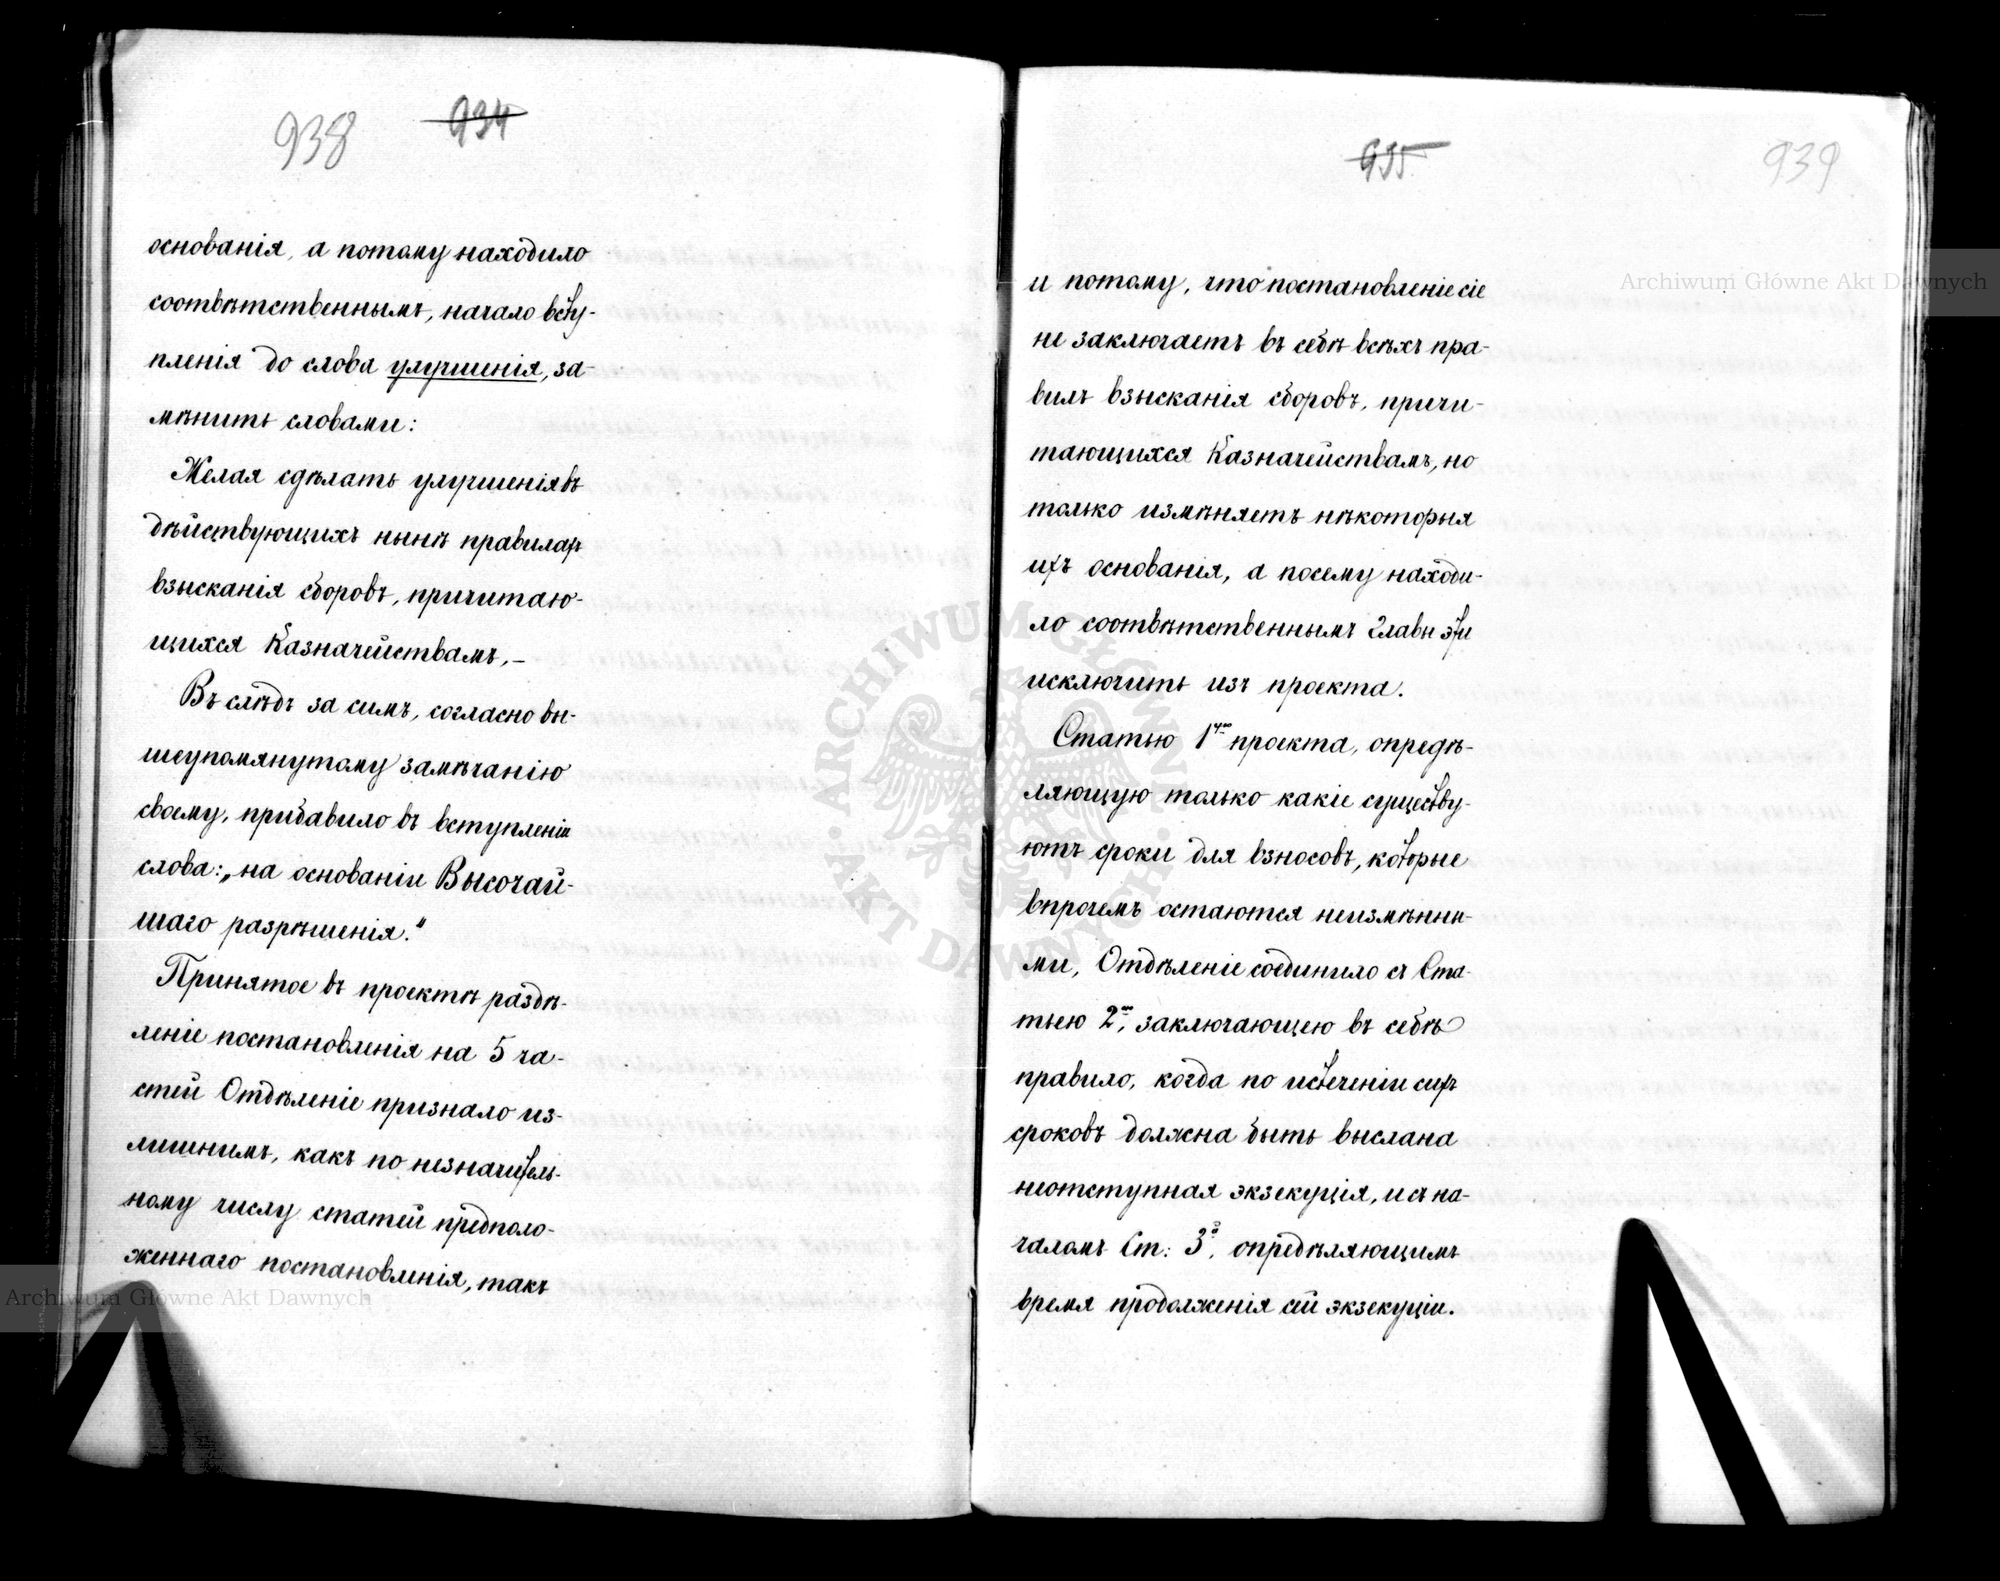 938 934
основанія, а потому находило
соотвѣтственнымъ, начало всту-
пленія до слова улучшенія, за-
мѣнить словами:
Желая сдѣлать улучшенія въ
дѣйствующихъ нынѣ правилахъ
взысканія сборовъ, причитаю-
щихся Казначействамъ, –
Въ слѣдъ за симъ, согласно вы-
шеупомянутому замѣчанію
своему, прибавило въ вступленіи
слова: „на основаніи Высочай-
шаго разрѣшенія."
Принятое въ проектѣ раздѣ-
леніе постановленія на 5 ча-
стей Отдѣленіе признало из-
лишнимъ, какъ по незначитель-
ному числу статей предполо-
женнаго постановленія, такъ
935 939
и потому, что постановленіе сіе
не заключаетъ въ себѣ всѣхъ пра-
вилъ взысканія сборовъ, причи-
тающихся Казначействамъ, но
только измѣняетъ нѣкоторыя
ихъ основанія, а посему находи-
ло соотвѣтственнымъ главы эти
исключить изъ проекта.
Статью 1ую проекта, опредѣ-
ляющую только какіе существу-
ютъ сроки для взносовъ, которые
впрочемъ остаются неизмѣнны-
ми, Отдѣленіе соединило съ Ста-
тьею 2ю, заключающею въ себѣ
правило, когда по истеченіи сихъ
сроковъ должна быть выслана
неотступная экзекуція, и съ на-
чаломъ Ст: 3й, опредѣляющимъ
время продолженія сей экзекуціи.
Archiwum Główne Akt Dawnych
Archiwum Główne Akt Dawnych
ARCHIWUM GŁÓWNE · AKT DAWNYCH ·